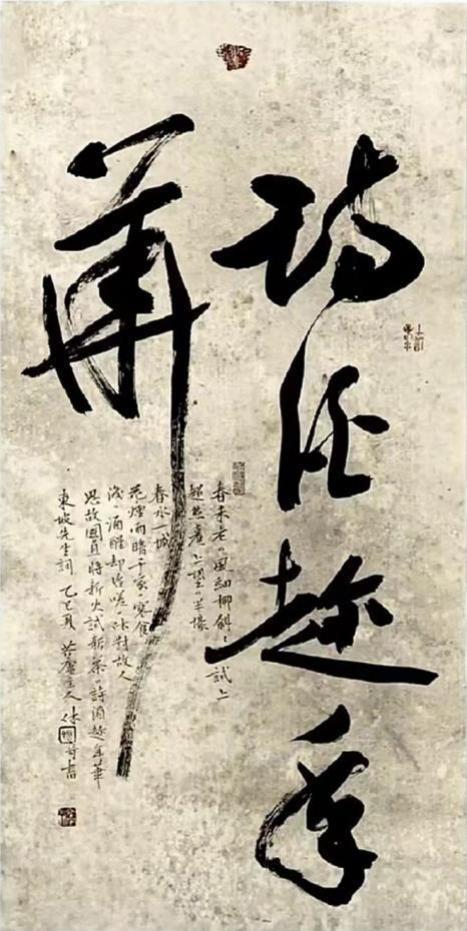 诗酒趂年
華
春未老風細柳斜斜試上
超然臺上望半壕
春水一城
花煙雨暗千家寒食
後酒醒却咨嗟休對故人
思故國且將新火試新茶詩酒趂年華
東坡先生詞 乙巳夏 主人 書